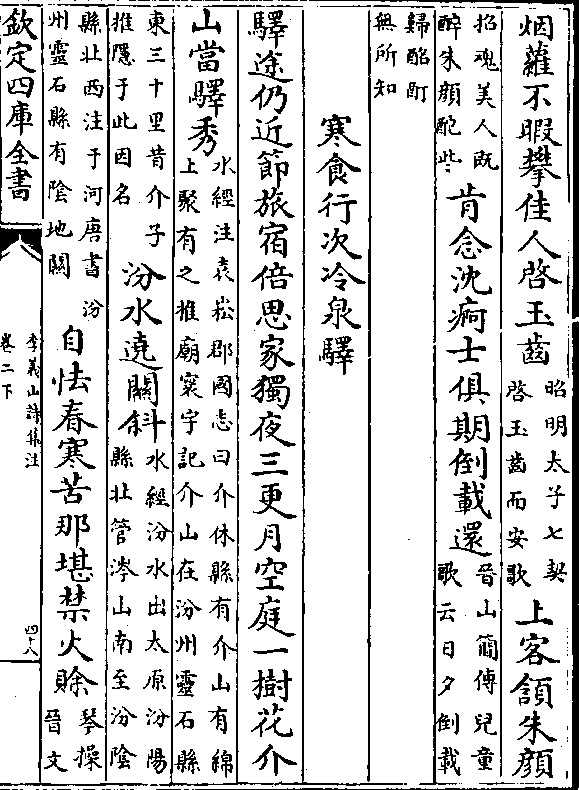 烟蘿不暇攀佳人啓玉齒
昭明太子七契
啓玉齒而安歌
上客頷朱顔
招魂美人既
醉朱顔酡些
肯念沈痾士俱期倒載還
晉山簡傳兒童
歌云日夕倒載
歸酩酊
無所知
寒食行次冷泉驛
驛途仍近節旅宿倍思家獨夜三更月空庭一樹花介
山當驛秀
水經注袁崧郡國志曰介休縣有介山有綿
上聚有之推廟寰宇記介山在汾州靈石縣
東三十里昔介子
推隱于此因名
汾水遶關斜
水經汾水出太原汾陽
縣北管涔山南至汾陰
縣北西注于河唐書汾
州靈石縣有陰地關
自怯春寒苦那堪禁火賖
琴操
晉文
欽定四庫全書
李義山詩集注
卷二下
四十八